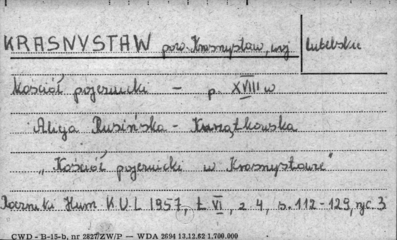 KRASNYSTAW pow. Krasnystaw, woj. lubelskie
Kościół pojezuicki – p. XVIII w
Alicja Rusińska - Kurzątkowska
"Kościół pojezuicki w Krasnymstawie"
Roczniki Hum K.U.L 1957, t. VI, z. 4, s. 112-129, ryc. 3
CWD - B-15-b, nr 2827/ZW/P — WDA 2694 13.12.82 1.700.000